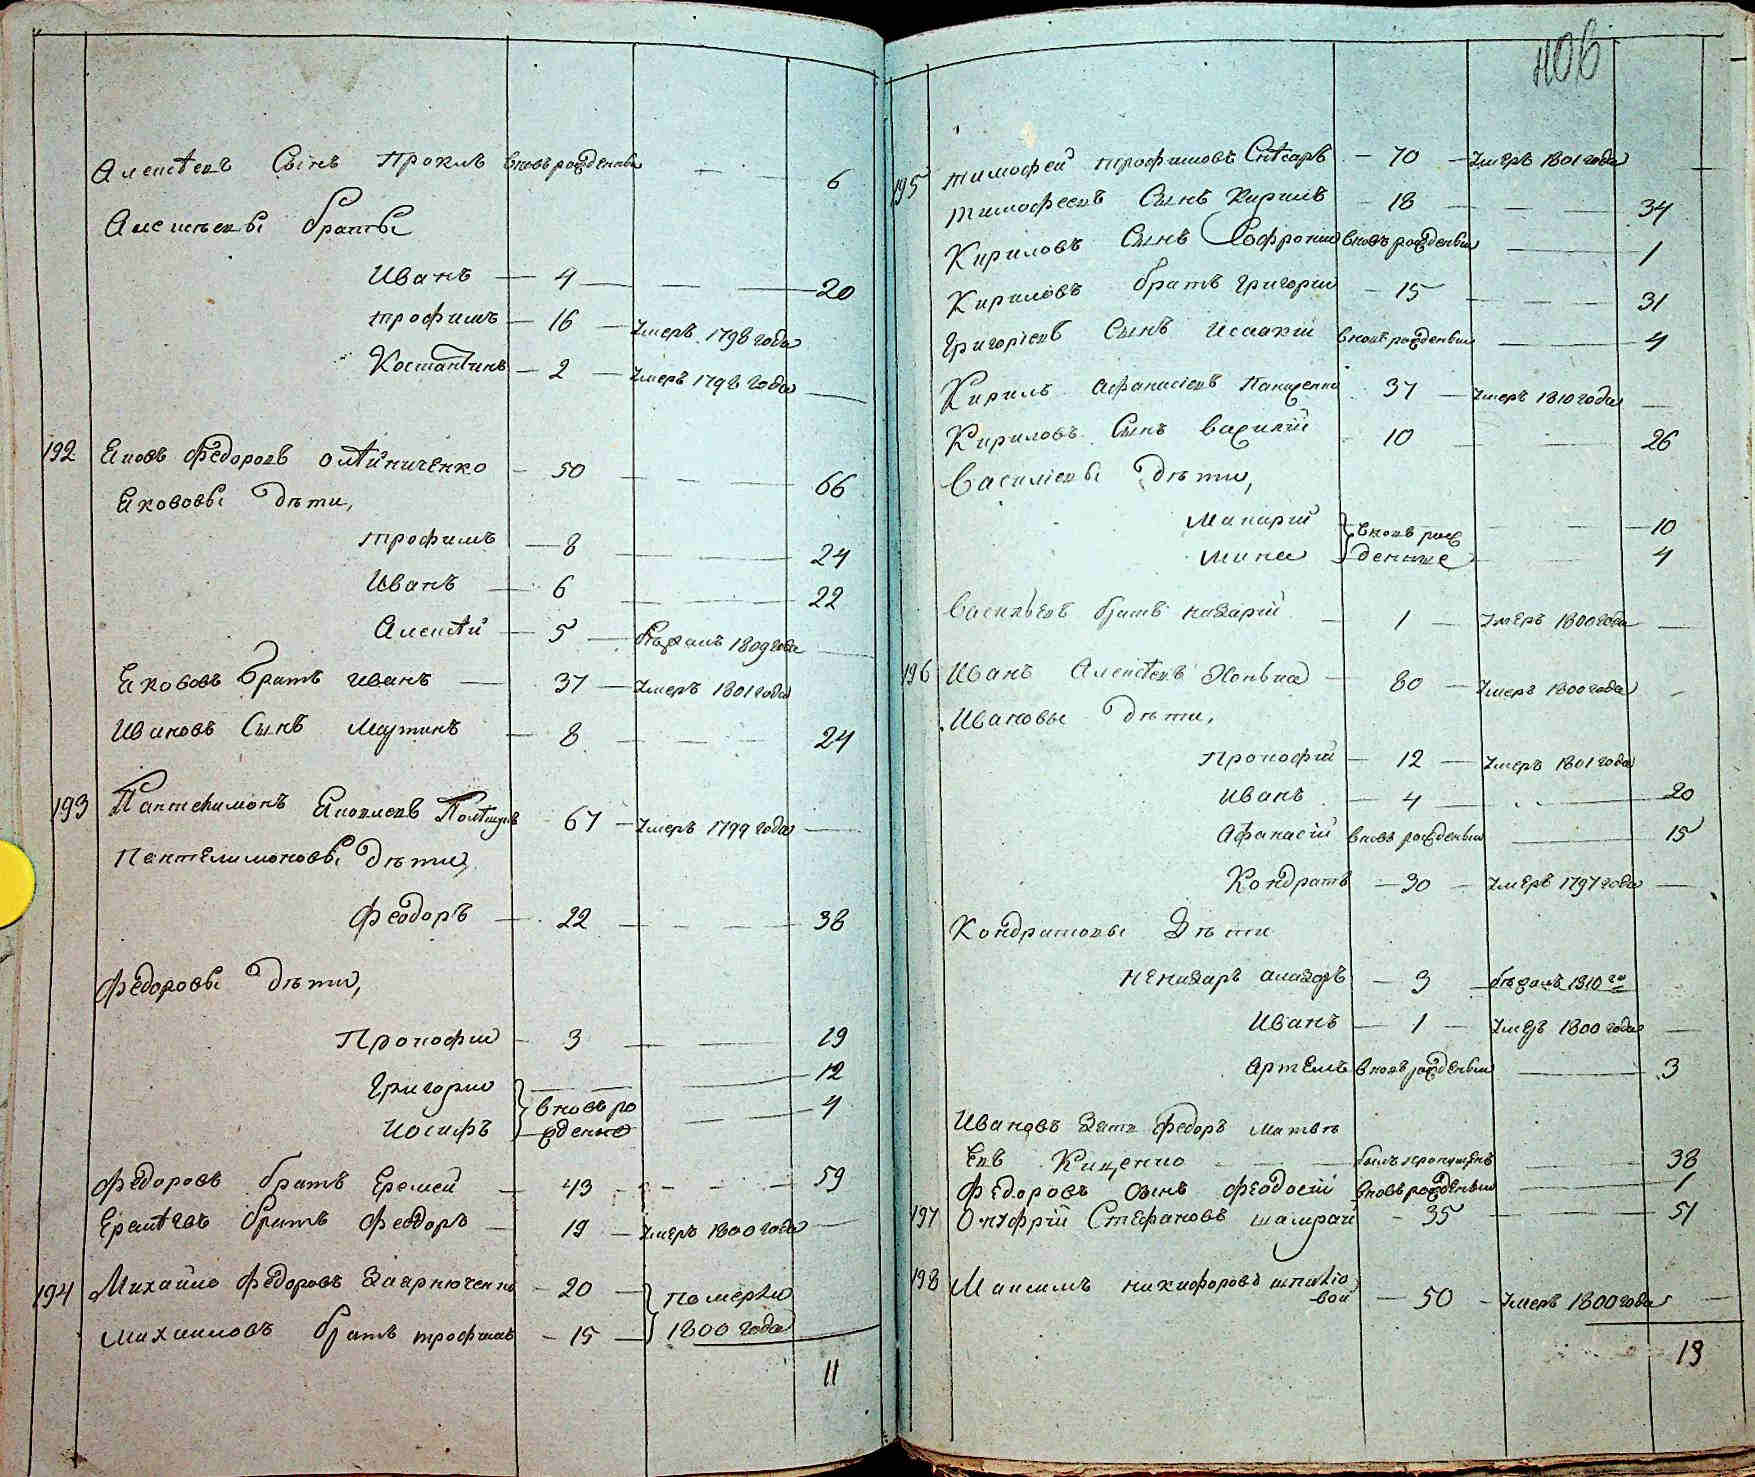 Алексѣевъ Сынъ Проклъ вновь рожденны — — 6
Алексѣевы братья
Иванъ — 4 — — — 20
трофимъ — 16 — умеръ 1798 года
Костантинъ — 2 — умеръ 1798 года —
192 Яковъ Федоровъ олѣйниченко — 50 — — — 66
Яковови дѣти,
трофимъ — 8 — — 24
Иванъ — 6 — — — 22
Алексѣй — 5 — бѣжалъ 1809 года —
Якововъ братъ иванъ — 37 — умеръ 1801 года
Ивановъ Сынъ Мартинъ — 8 — — — 24
193 Пантелимонъ Яковлевъ — 67 — умеръ 1799 года —
Пантелимоновы дѣти,
Феодоръ — 22 — — — 38
Федоровы дѣти,
Прокофии — 3 — — 19
Григорию — — — 12
Иосифъ } вновь рожденые — 4
Федоровъ братъ Еремей — 43 — — — 59
Еремѣевъ братъ Феодоръ — 19 — умеръ 1800 года —
194 Михайло Федоровъ — 20 —
Михаиловъ братъ трофимъ — 15 — } Померли 1800 года
11
406
195 тимофеи трофимовъ Слѣсарь — 70 — умеръ 1801 года —
тимофеевъ Сынъ Кирилъ — 18 — — — 34
Кириловъ Сынъ Софрони вновь рожденыи — 1
Кириловъ братъ Григории — 15 — — — 31
Григоріевъ Сынъ Исаакіи вновь рожденыи — 4
Кирилъ Афанасіевъ — 37 — умеръ 1810 года —
Кириловъ Сынъ василій — 10 — — 26
Василіевы дѣти,
Макарій — — 10
Мина } вновь рожденые — 4
Васильевъ братъ назарій — 1 — умеръ 1800 года —
196 Иванъ Алексѣевъ — 80 — умеръ 1800 года —
Ивановы дѣти,
Прокофій — 12 — умеръ 1801 года
Иванъ — 4 — — 20
Афанасій вновь рожденыи — 15
Кондратъ — 30 — умеръ 1797 года —
Кондратовы Дѣти
Александръ — 3 — бѣжалъ 1810 го
Иванъ — 1 — умеръ 1800 года —
Артемъ вновь рожденыи — 3
Ивановъ Зять Федоръ матвѣ
евъ Кищенко — былъ пропущенъ — 38
Федоровъ Сынъ Феодосій вновь рожденыи — 1
197 Онуфрій Стефановъ шамрай — 35 — — — 51
198 Максимъ никифоровъ — 50 — умеръ 1800 года —
13